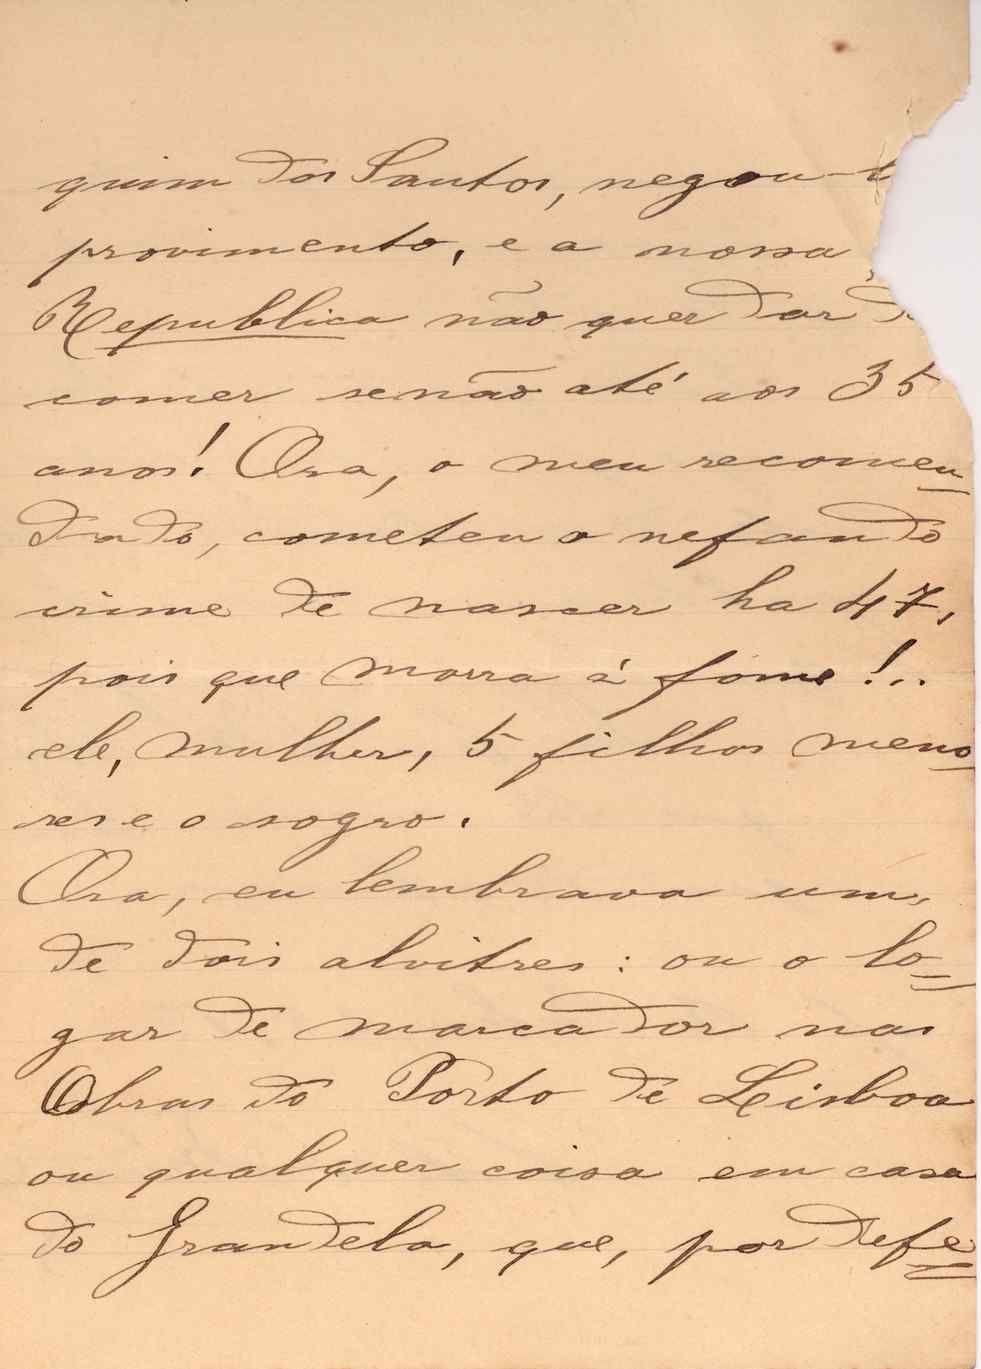 quim dos Santos, negou-
provimento, e a nossa
Republica não quer dar
comer senão até aos 35
anos! Ora, o meu recomen-
dado, cometeu o nefando
crime de nascer ha 47,
pois que morra á fome!..
ele, mulher, 5 filhos meno-
res e o sogro.
Ora, eu lembrava um,
de dois alvitres: ou o lo=
gar de marcador nas
Obras do Porto de Lisboa
ou qualquer coisa em casa
do Grandela, que, por defe=